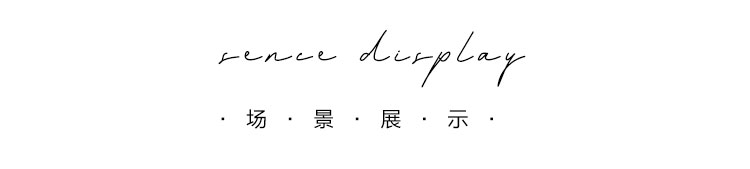 sence display
· 场 · 景 · 展 · 示 ·